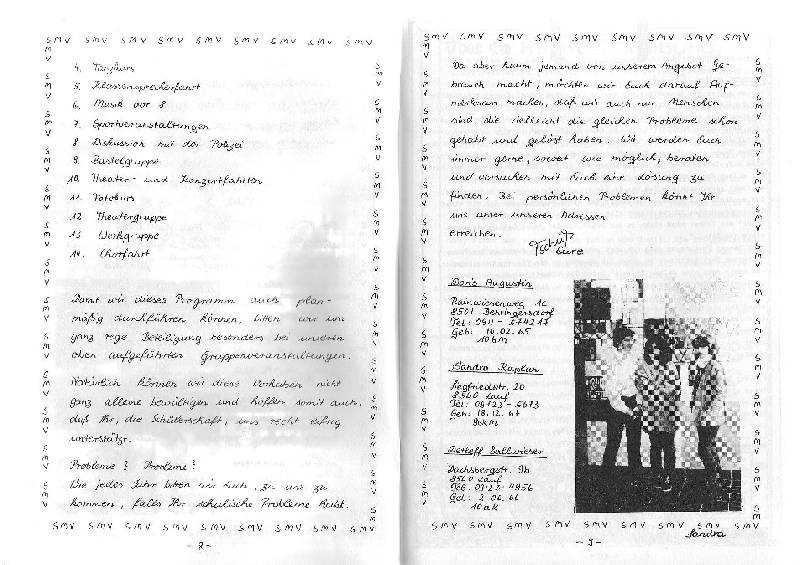 SMV SMV SMV SMV SMV SMV SMV SMV SMV
4. Tanzkurs
5. Klassensprecherfahrt
6. Musik vor 8
7. Sportveranstaltungen
8. Diskussion mit der Polizei
9. Bastelgruppe
10. Theater- und Konzertfahrten
11. Fotokurs
12 Theatergruppe
13 Werkgruppe
14. Chorfahrt
Damit wir dieses Programm auch plan-
mäßig durchführen können, bitten wir um
ganz rege Beteiligung besonders bei unseren
oben aufgeführten Gruppenveranstaltungen.
Natürlich können wir diese Vorhaben nicht
ganz alleine bewältigen und hoffen somit auch,
daß Ihr, die Schülerschaft, uns recht eifrig
unterstützt.
Probleme? Probleme!
Wie jedes Jahr bitten wir Euch, zu uns zu
kommen, falls Ihr schulische Probleme habt.
SMV SMV SMV SMV SMV SMV SMV SMV
- 2 -
SMV SMV SMV SMV SMV SMV SMV SMV SMV
Da aber kaum jemand von unserem Angebot Ge-
brauch macht, möchten wir Euch darauf Auf-
merksam machen, daß wir auch nur Menschen
sind, die vielleicht die gleichen Probleme schon
gehabt und gelöst haben. Wir werden Euch
immer gerne, soweit wie möglich, beraten
und versuchen mit Euch eine Lösung zu
finden. Bei persönlichen Problemen könnt Ihr
uns unter unseren Adressen
erreichen.
Eure
Doris Augustin
Rainwiesenweg 1c
8501 Behringersdorf
Tel: 0911 - 574217
Geb: 14.02.65
10bm
Sandra Kaplan
Siegfriedstr. 20
8560 Lauf
Tel: 09123 - 5673
Geb: 18.12.
Detleff
Dachsbergstr. 9b
8560 Lauf
Tel: 09123 4956
Geb: 2.06.66
10ak
SMV SMV SMV SMV SMV SMV SMV SMV
Sandra
- 3 -